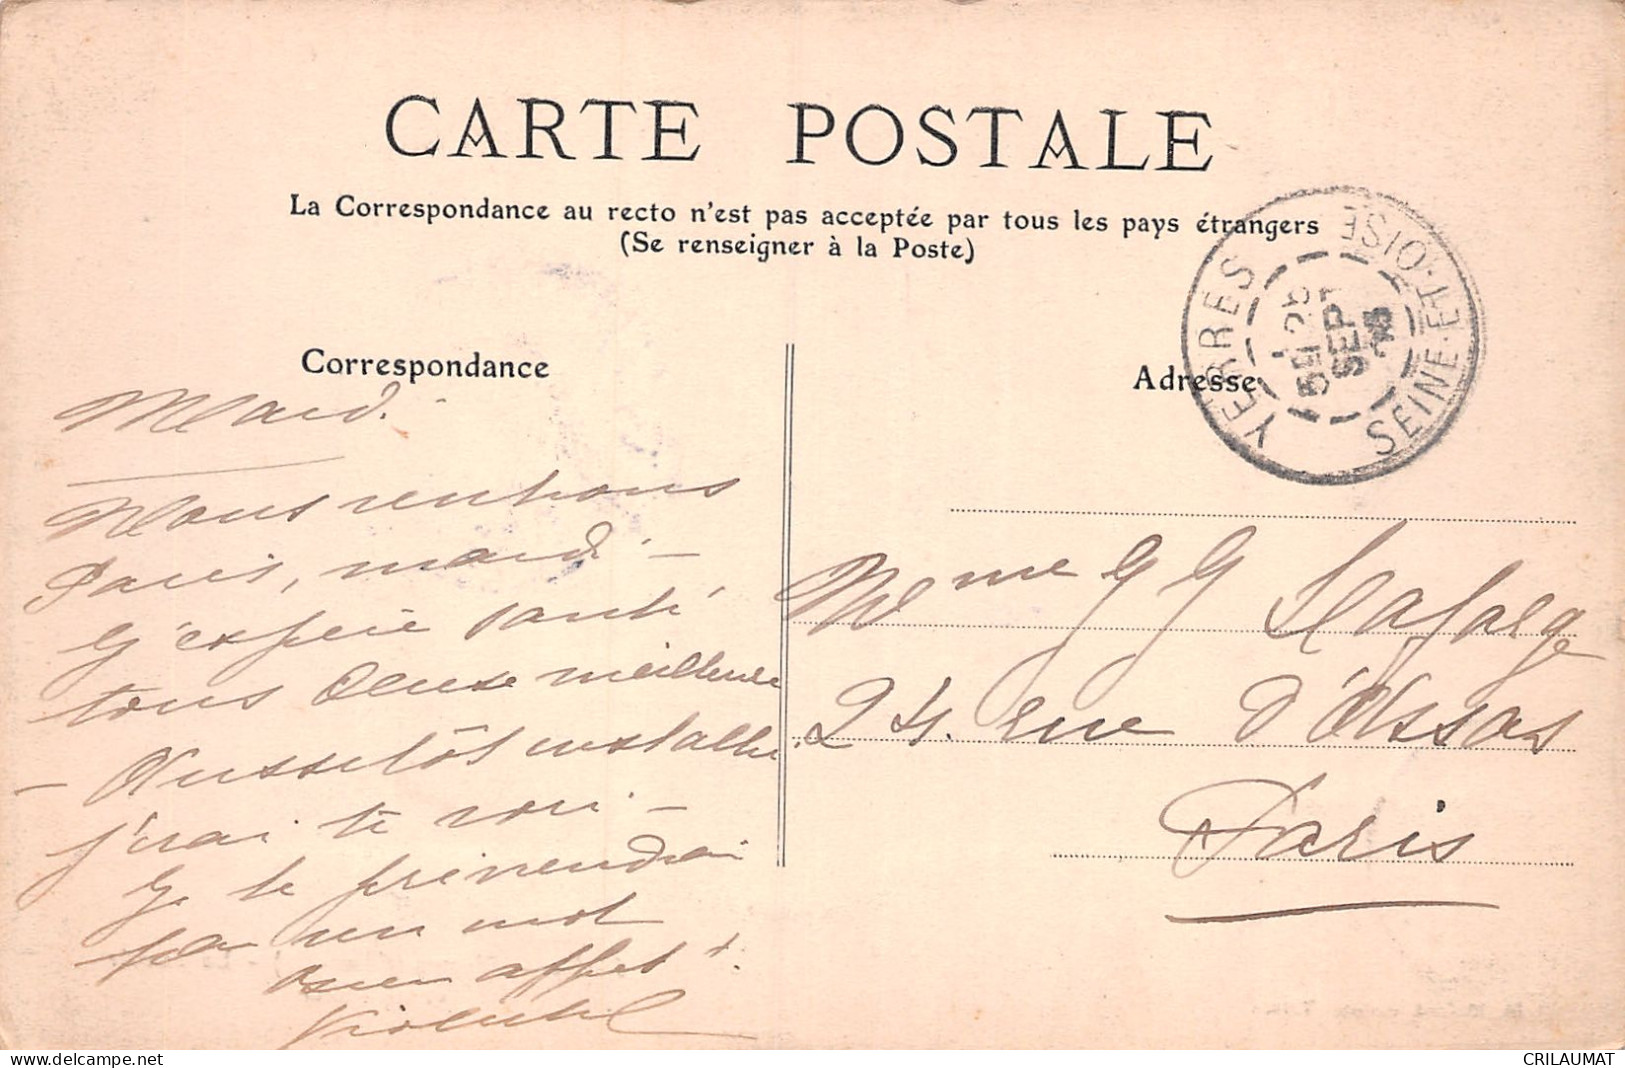 CARTE POSTALE
La Correspondance au recto n'est pas acceptée par tous les pays étrangers
(Se renseigner à la Poste)
YERRES
SEINE-ET-OISE
SEPT
Correspondance
Adresse
Mardi.
Nous rentrons
Paris, mardi -
J'espère santé
tous deux meilleure
- Aussitôt installée
j'irai te voir -
Je te préviendrai
par un mot
bien affect
Mme G G Lafarge
24. rue d'Assas
Paris
CRILAUMAT